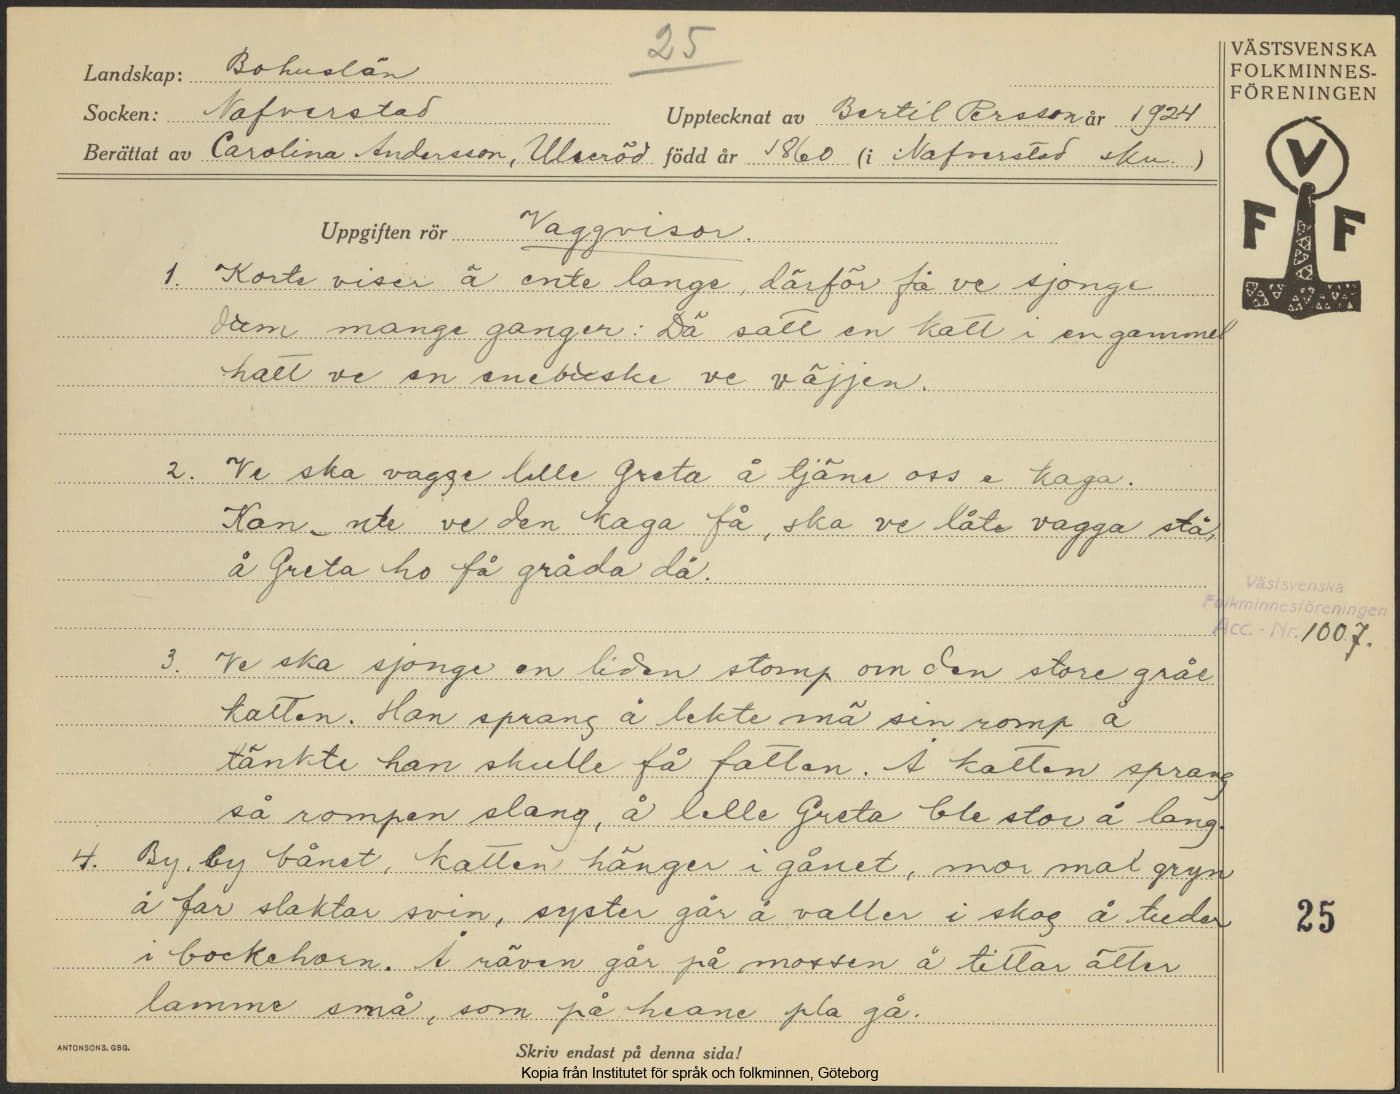 25
Landskap: Bohuslän
Socken: Nafverstad
Upptecknat av Bertil Persson år 1924
Berättat av Carolina Andersson, Ulseröd född år 1860 (i Nafverstad skn. )
VÄSTSVENSKA
FOLKMINNES-
FÖRENINGEN
V
F F
Uppgiften rör Vaggvisor.
1. Korte viser ä ente lange, därför få ve sjonge
dæm mange ganger: Dä satt en katt i en gammel
hatt ve en enebuske ve väjjen.
2. Ve ska vagge lelle Greta å tjäne oss e kaga.
Kan nte ve den kaga få, ska ve låte vagga stå,
å Greta ho få gråda då.
3. Ve ska sjonge en liden stomp om den store gråe
katten. Han sprang å lekte mä sin romp å
tänkte han skulle få fatten. Å katten sprang
så rompen slang, å lelle Greta ble stor å lang.
4. By, by bånet, katten hänger i gånet, mor mal gryn
å far slaktar svin, syster går å valler i skog å tuder
i bockehorn. Å räven går på mossen å tittar ätter
lamme små, som på heane pla gå.
Västsvenska
Folkminnesföreningen
Acc. - Nr. 1007.
25
ANTONSONS, GBG.
Skriv endast på denna sida!
Kopia från Institutet för språk och folkminnen, Göteborg